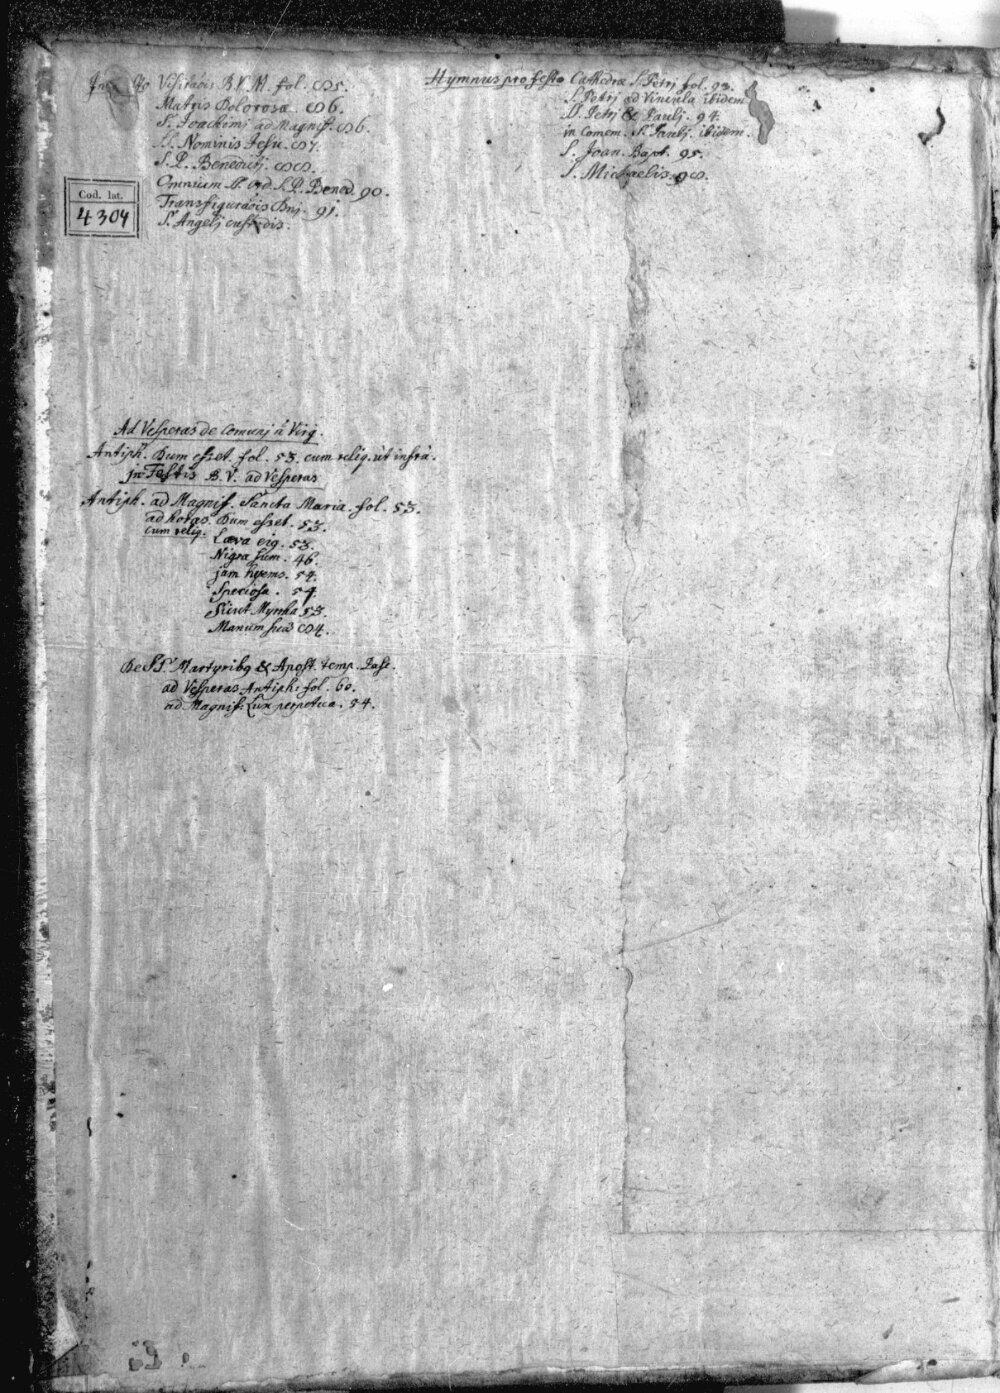 Visita[ti]ois B.V.M. fol. 85.
Matris Dolorosæ. 86.
S. Joachimi ad Magnif. 86.
SS. Nominis Jesu. 87.
S. P. Benedictj. 88.
Omnium SS. Ord. S. P. Bened. 90.
Transfiguraõis Dnj. 91.
S. Angelj custodis.
Cod. lat.
4304
Hymnus pro festo Cathedræ S. Petrj fol. 93.
S. Petrj ad Vincula ibidem
SS. Petrj & Paulj. 94.
in Comem. S. Paulj. ibidem.
S. Joan. Bapt. 95.
S. Michaelis. 98.
Ad Vesperas de Comunj a Virg.
Antiph. Dum esset. fol. 53. cum reliq. ut infra.
jn Festis B. V. ad Vesperas
Antiph. ad Magnif. Sancta Maria. fol. 53.
ad horas. Dum esset. 53.
cum reliq. Læva eig. 53.
Nigra sum. 46.
jam hyems. 54.
Speciosa. 54.
Sicut Myrrha 53.
Manum suã 84.
De SS. Martyribq & Apost. temp. Pasc.
ad Vesperas Antiph. fol. 60.
ad Magnif. Lux perpetua. 54.